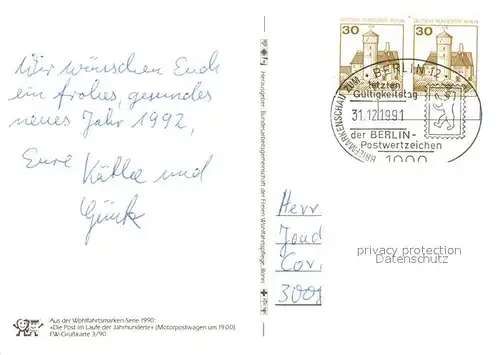 Wir wünschen Euch
ein frohes, gesundes
neues Jahr 1992,
Eure Käthe und
Aus der Wohlfahrtsmarken-Serie 1990:
»Die Post im Laufe der Jahrhunderte« (Motorpostwagen um 1900).
PW-Grußkarte 3/90
Herausgeber: Bundesarbeitsgemeinschaft der Freien Wohlfahrtspflege, Bonn
DEUTSCHE BUNDESPOST BERLIN
30
DEUTSCHE BUNDESPOST BERLIN
30
BRIEFMARKENSCHAU ZUM
BERLIN 12
letzten
Gültigkeitstag
31.12.1991
der BERLIN-
Postwertzeichen
1000
Herr
privacy protection
Datenschutz